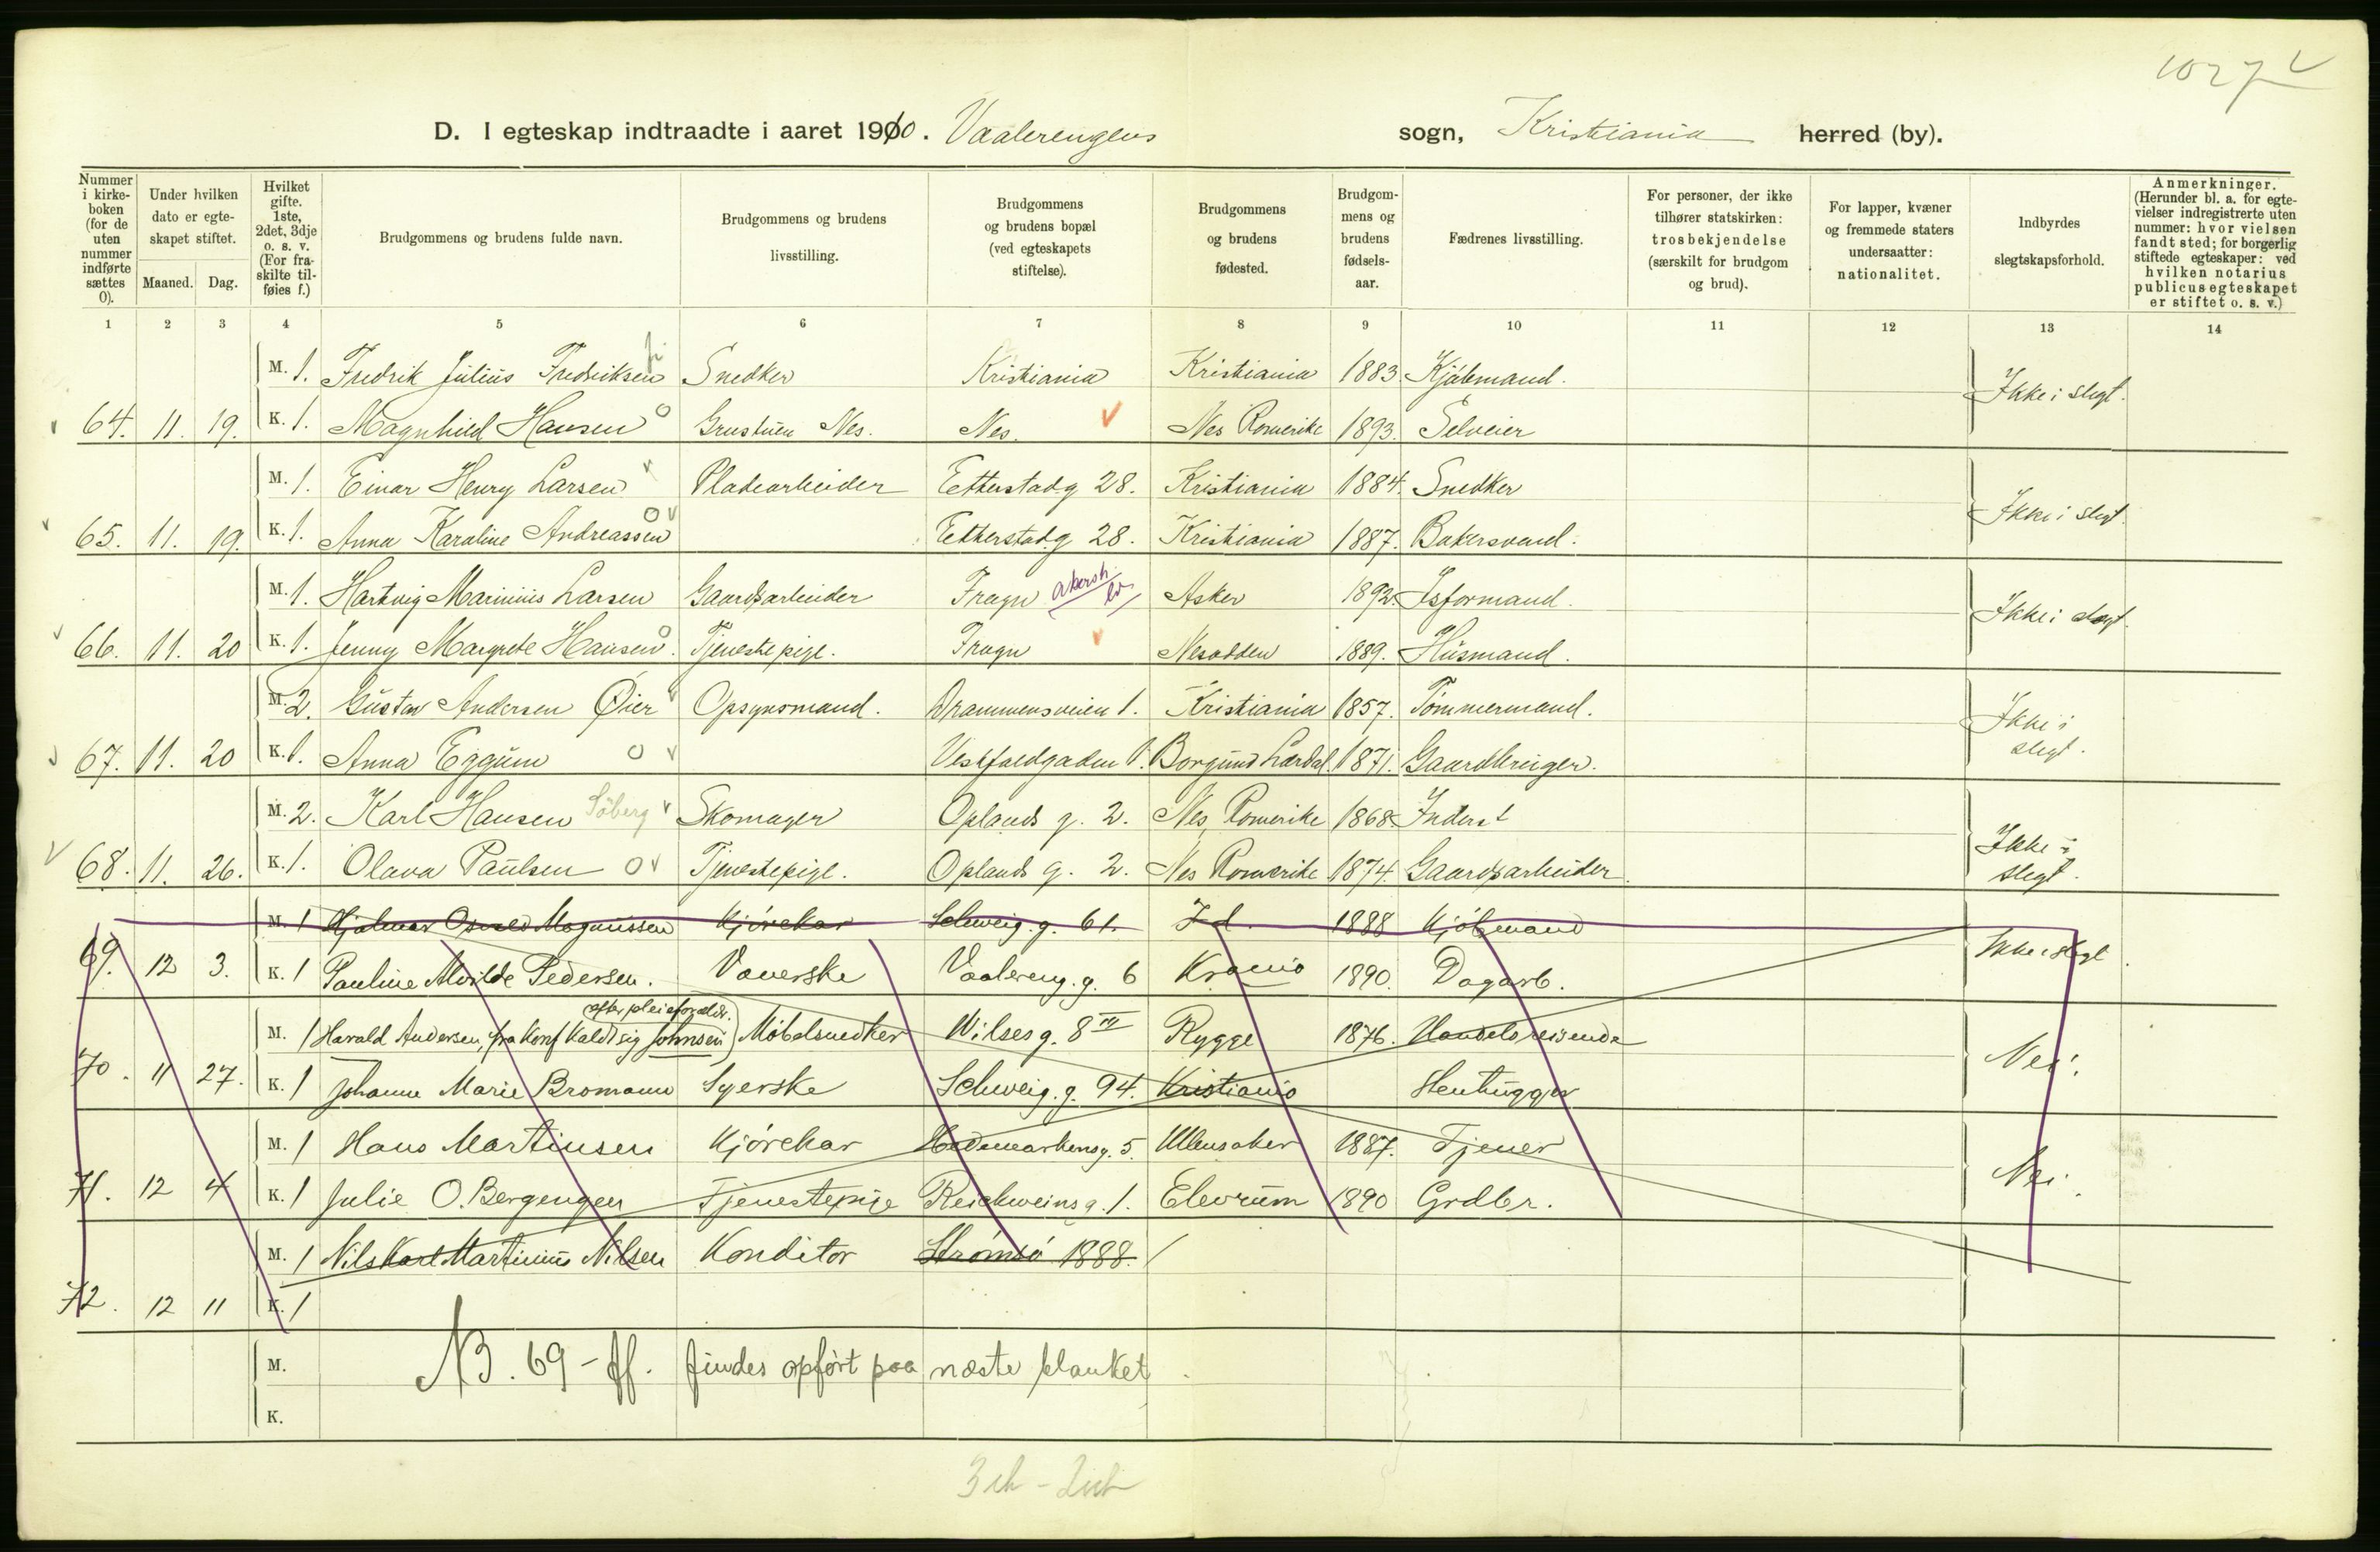 1027 ✓
D. I egteskap indtraadte i aaret 1910. Vaalerengens sogn, Kristiania herred (by).
Nummer i kirke-boken (for de uten nummer indførte sættes 0). | Under hvilken dato er egte-skapet stiftet. Maaned. Dag. | Hvilket gifte. 1ste, 2det, 3dje o. s. v. (For fra-skilte til-føies f.) | Brudgommens og brudens fulde navn. | Brudgommens og brudens livsstilling. | Brudgommens og brudens bopæl (ved egteskapets stiftelse). | Brudgommens og brudens fødested. | Brudgom-mens og brudens fødsels-aar. | Fædrenes livsstilling. | For personer, der ikke tilhører statskirken: trosbekjendelse (særskilt for brudgom og brud). | For lapper, kvæner og fremmede staters undersaatter: nationalitet. | Indbyrdes slegtskapsforhold. | Anmerkninger. (Herunder bl. a. for egte-vielser indregistrerte uten nummer: hvor vielsen fandt sted; for borgerlig stiftede egteskaper: ved hvilken notarius publicus egteskapet er stiftet o. s. v.)
1 2 3 4 5 6 7 8 9 10 11 12 13 14
M. 1. Fredrik Julius Fredriksen Snedker Kristiania Kristiania 1883. Kjøbmand. Ikke i slegt.
64. 11. 19. K. 1. Magnhild Hansen Nes. Nes. Nes Romerike 1893. Selveier
M. 1. Einar Henry Larsen Pladearbeider Etterstadg 28. Kristiania 1884. Snedker Ikke i slegt.
65. 11. 19. K. 1. Anna Karoline Andreassen Etterstadg 28. Kristiania 1887. Bakersvend.
M. 1. Hartvig Marinius Larsen Gaardsarbeider Frogn Akersh. Asker 1892. Isformand. Ikke i slegt.
66. 11. 20 K. 1. Jenny Margrete Hansen. Tjenestepige. Frogn Nesodden 1889. Husmand.
M. 2. Gustav Andersen Øier Opsynsmand. Drammensveien 1. Kristiania 1857. Tømmermand. Ikke i slegt.
67. 11. 20 K. 1. Anna Eggum Vestfoldgaden 1. Borgund Lærdal. 1871. Gaardbruger.
M. 2. Karl Hansen Søberg Skomager Oplands g. 2. Nes, Romerike 1868. Inderst Ikke i slegt.
68. 11. 26. K. 1. Olava Paulsen Tjenestepige. Oplands g. 2. Nes Romerike 1874. Gaardsarbeider.
M. 1 Hjalmar Osvald Magnussen Kjørekar Schweig. g. 61. Id. 1888 Kjøbmand Ikke i slegt
69. 12 3. K. 1 Pauline Alvilde Pedersen. Væverske Vaalereng. g. 6 Krania 1890. Dagarb.
efter pleieforældr.
M. 1 Harald Andersen, fra Konf kaldt sig Johnsen) Møbelsnedker Nilses g. 8 III Rygge 1876. Handelsreisende Nei.
70. 11 27. K. 1 Johanne Marie Bromann Syerske Schweig. g. 94. Kristiania Stenhugger
M. 1 Hans Martinsen Kjørekar Hedemarkens g. 5. Ullensaker 1887. Tjener Nei.
71. 12 4 K. 1 Julie O. Bergengen Tjenestepige Reichweins g. 1. Elverum 1890 Grdbr.
M. 1 Nils Karl Martinius Nilsen Konditor Strømsø 1888.
72. 12 11 K. 1
M. NB. 69 - ff. findes opført paa næste blanket
K.